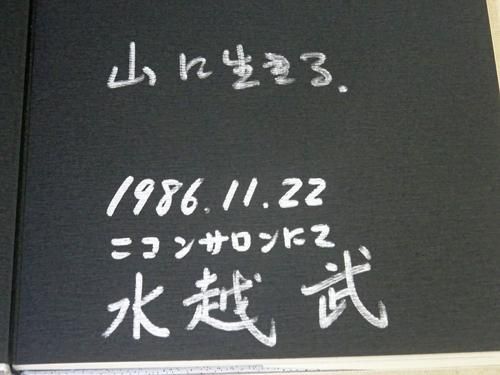 山に生きる.
1986.11.22
ニコンサロンにて
水越 武